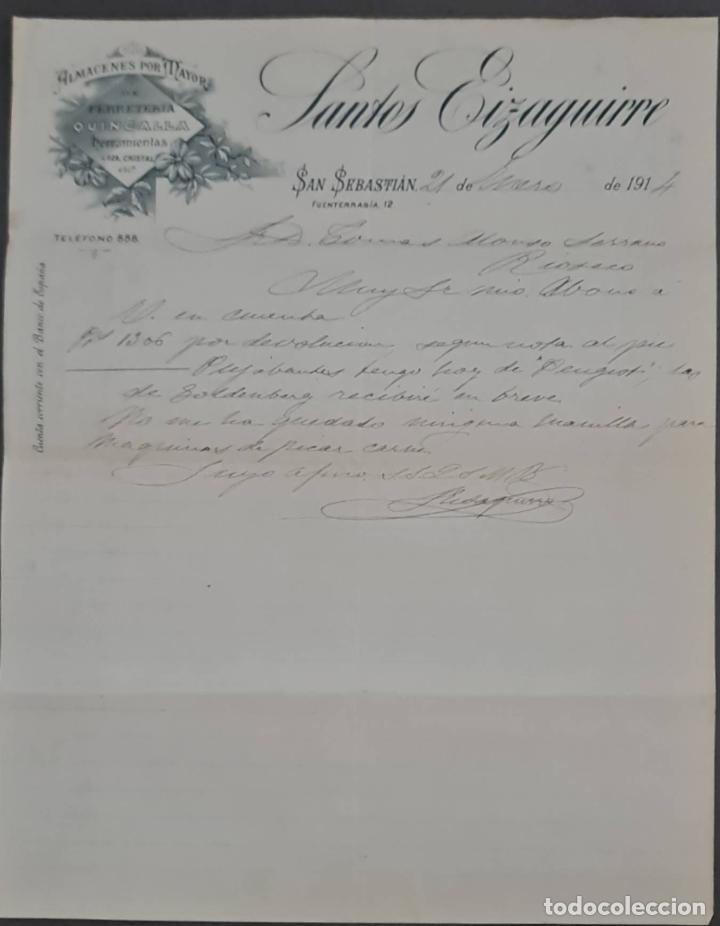 ALMACENES POR MAYOR
DE
FERRETERÍA
QUINCALLA
Herramientas
LOZA, CRISTAL
ETCª
Santos Eizaguirre
SAN SEBASTIÁN, 21 de Enero de 1914
FUENTERRABÍA, 12
TELÉFONO 558
Cuenta corriente con el Banco de España
Sr D. Tomas Alonso Serrano
Rioseco
Muy Sr mio Abono á
V. en cuenta
Pts 13'06 por devolucion segun nota al pie
Pujabantes tengo hoy de "Peugeot", las
de Goldenberg recibiré en breve
No me ha quedado ninguna manilla para
maquinas de picar carne
Suyo afmo S.S.Q.S.M.B.
SEizaguirre
todocoleccion.net